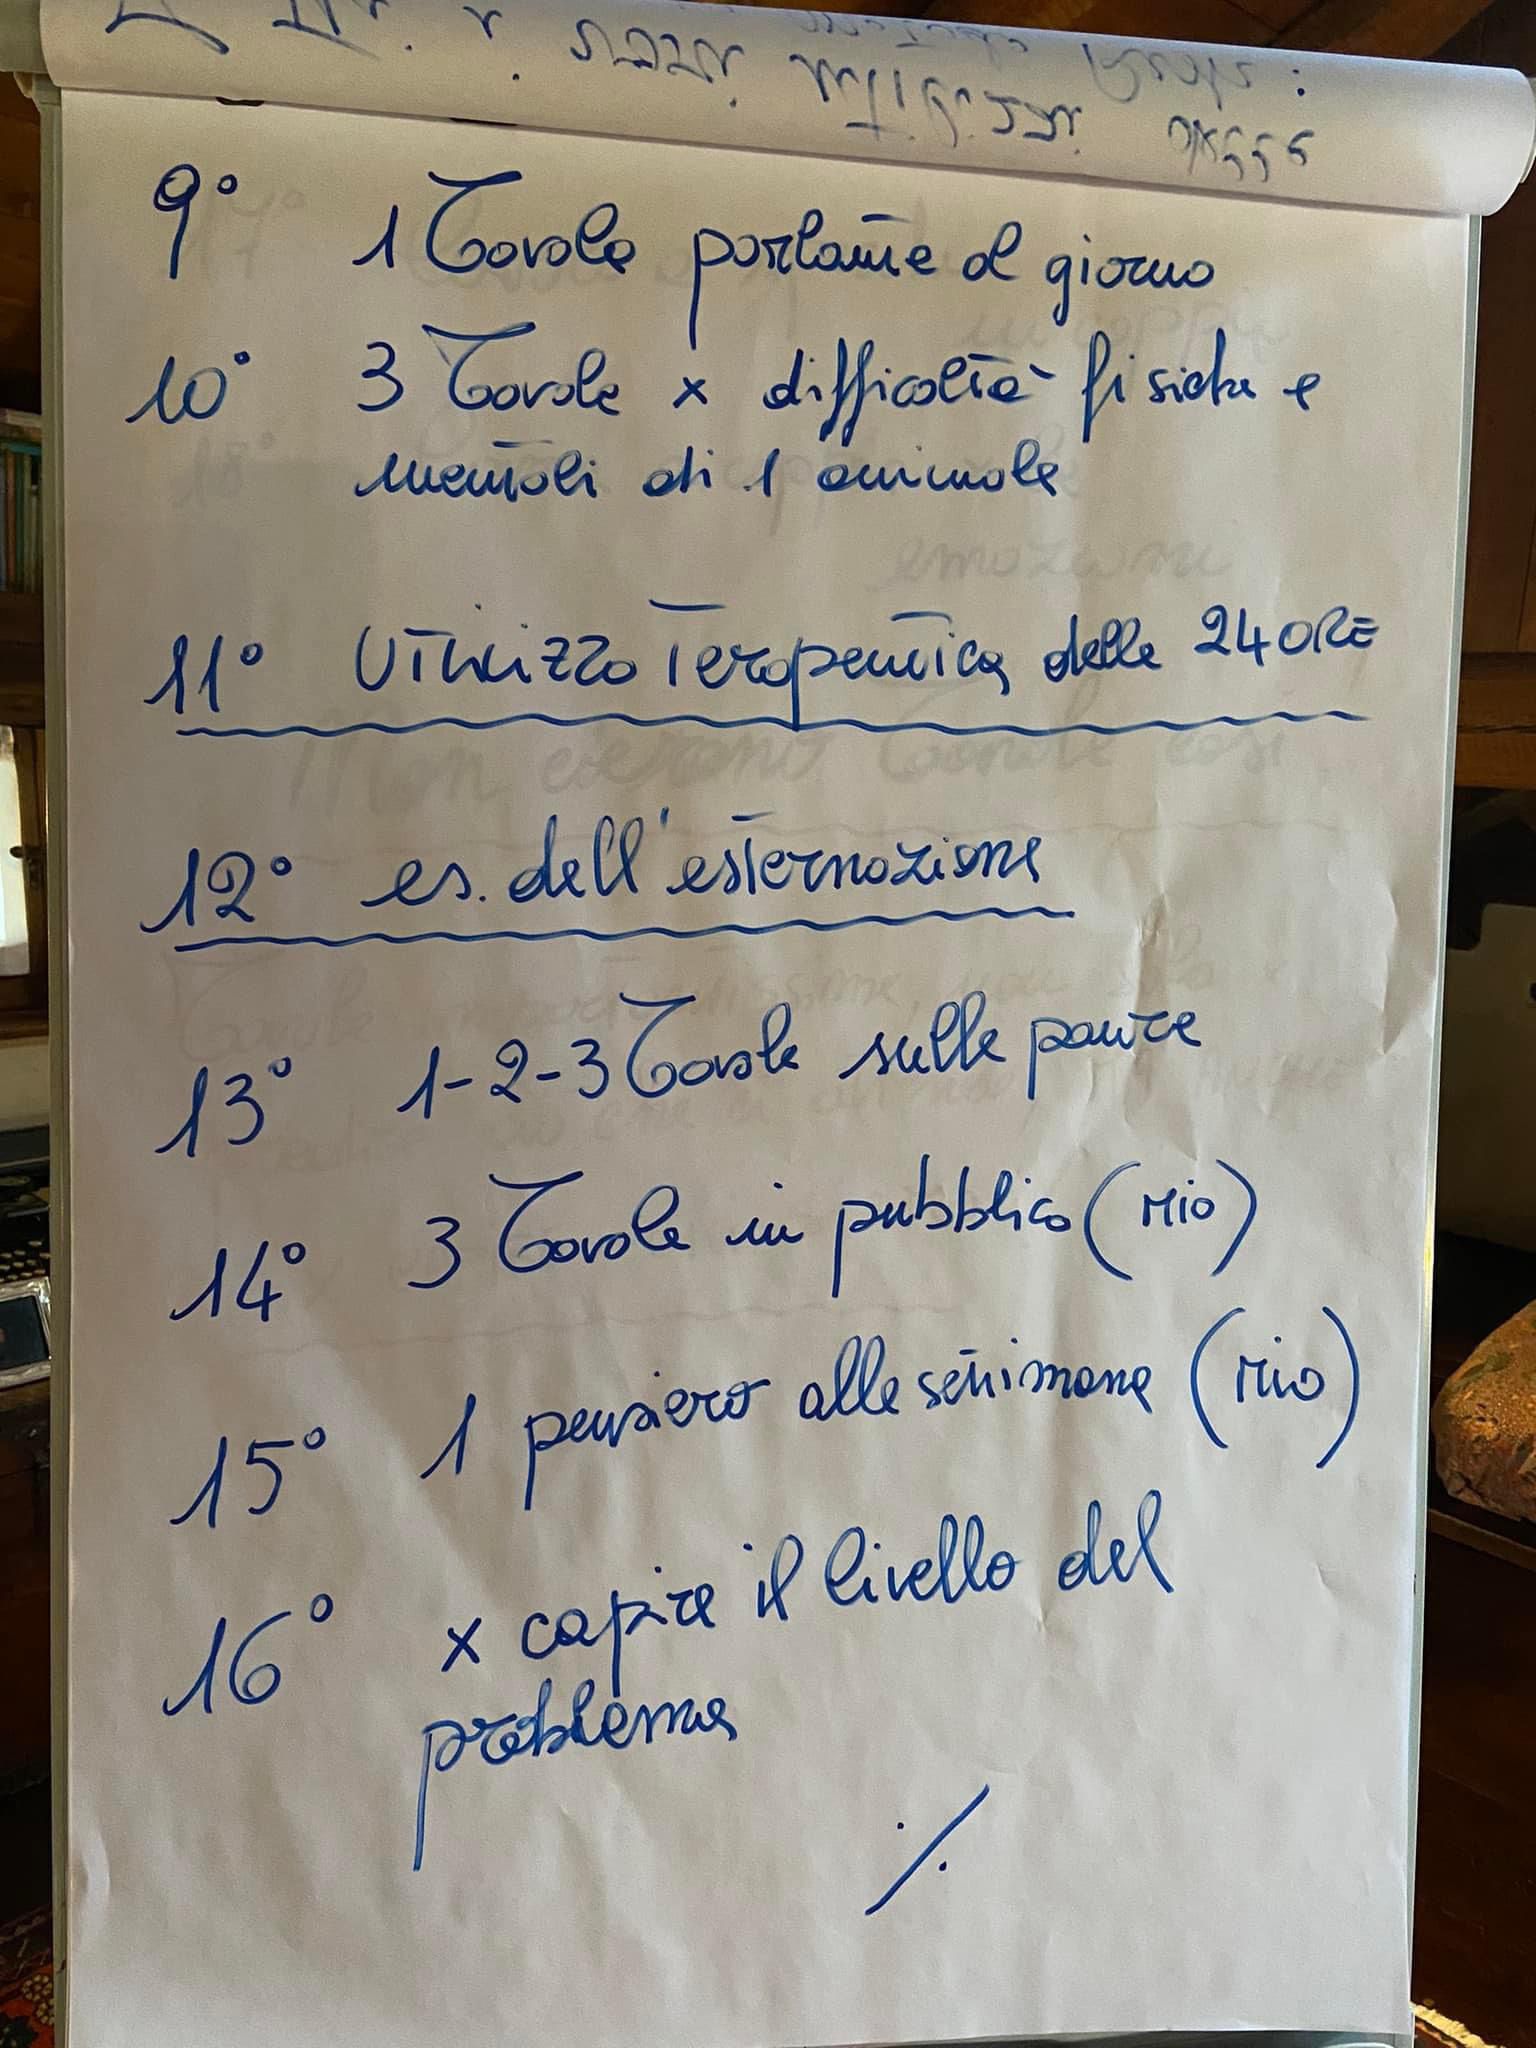 9° 1 Tavola parlante al giorno
10° 3 Tavole x difficoltà fisiche e
mentali di 1 animale
11° Utilizzo Terapeutico delle 24 ORE
12° es. dell'esternazione
13° 1-2-3 Tavole sulle paure
14° 3 Tavole in pubblico (mio)
15° 1 pensiero alla settimana (mio)
16° x capire il livello del
problema
./.